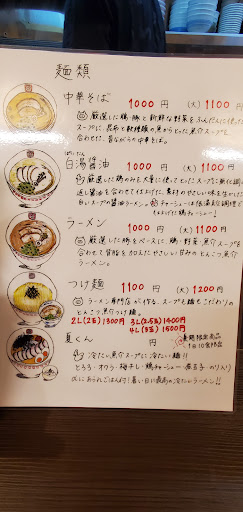 麺類
中華そば 1000円 (大)1100円
厳選した鶏・豚と新鮮な野菜をふんだんに使った
スープに、昆布と数種類の魚からとった魚介スープを
合わせた、昔ながらの中華そば。
白湯醤油 1000円 (大)1100円
厳選した鶏のみを大量に使ってとったスープに
返し醤油を合わせて仕上げた、素材のやさしい味を
白いスープの醤油ラーメン。
ラーメン 1000円 (大)1100円
厳選した豚をベースに、鶏・野菜・魚介スープを
合わせて背脂を加えたやさしい甘みのとんこつ魚介
ラーメン。
つけ麺 1100円 (大)1200円
ラーメン専門店が作る、スープも麺もこだわりの
とんこつ魚介つけ麺。
2L(2玉)1300円 3L(2.5玉)1400円
4L(3玉)1500円
夏くん 円
夏期限定商品
1日10食限定
冷たい魚介スープに冷たい麺!!
とろろ・オクラ・梅干し・鶏チャーシュー・煮玉子・のり
暑い日に最高の冷たいラーメン!!